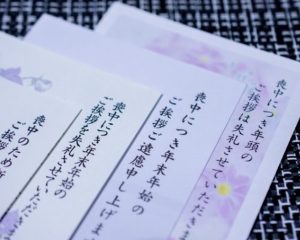 喪中につき年頭の
ご挨拶は失礼させていただきま
喪中につき年末年始の
ご挨拶ご遠慮申し上げます
喪中につき年末年始の
ご挨拶を失礼させていただ
喪中のため
ご挨拶